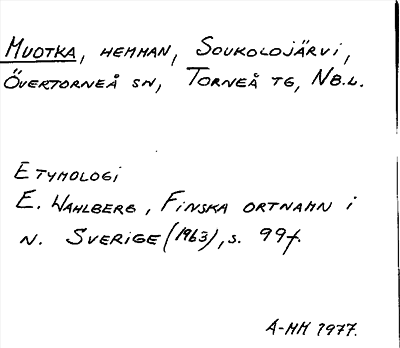 MUOTKA, HEMMAN, SOUKOLOJÄRVI,
ÖVERTORNEÅ SN, TORNEÅ TG, NB.L.
ETYMOLOGI
E. WAHLBERG, FINSKA ORTNAMN I
N. SVERIGE (1963), S. 99f.
A-MH 1977.